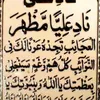 نَادِ عَلِيًّا مَظْهَرَ
الْعَجَائِبِ تَجِدْهُ عَوْنًا لَكَ فِي
النَّوَائِبِ كُلُّ هَمٍّ وَغَمٍّ سَيَنْجَلِي
بِعَظَمَتِكَ يَا اللهُ بِنُبُوَّتِكَ يَا